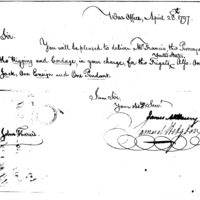 War Office, April 28th 1797.
Sir.
You will be pleased to deliver Mr Francis the Purveyor
the Rigging and Cordage, in your charge, for the Frigate, Also One
Jack, One Ensign and One Pendant.
I am Sir,
Your
James McHenry
Samuel Hodgdon
John Harris